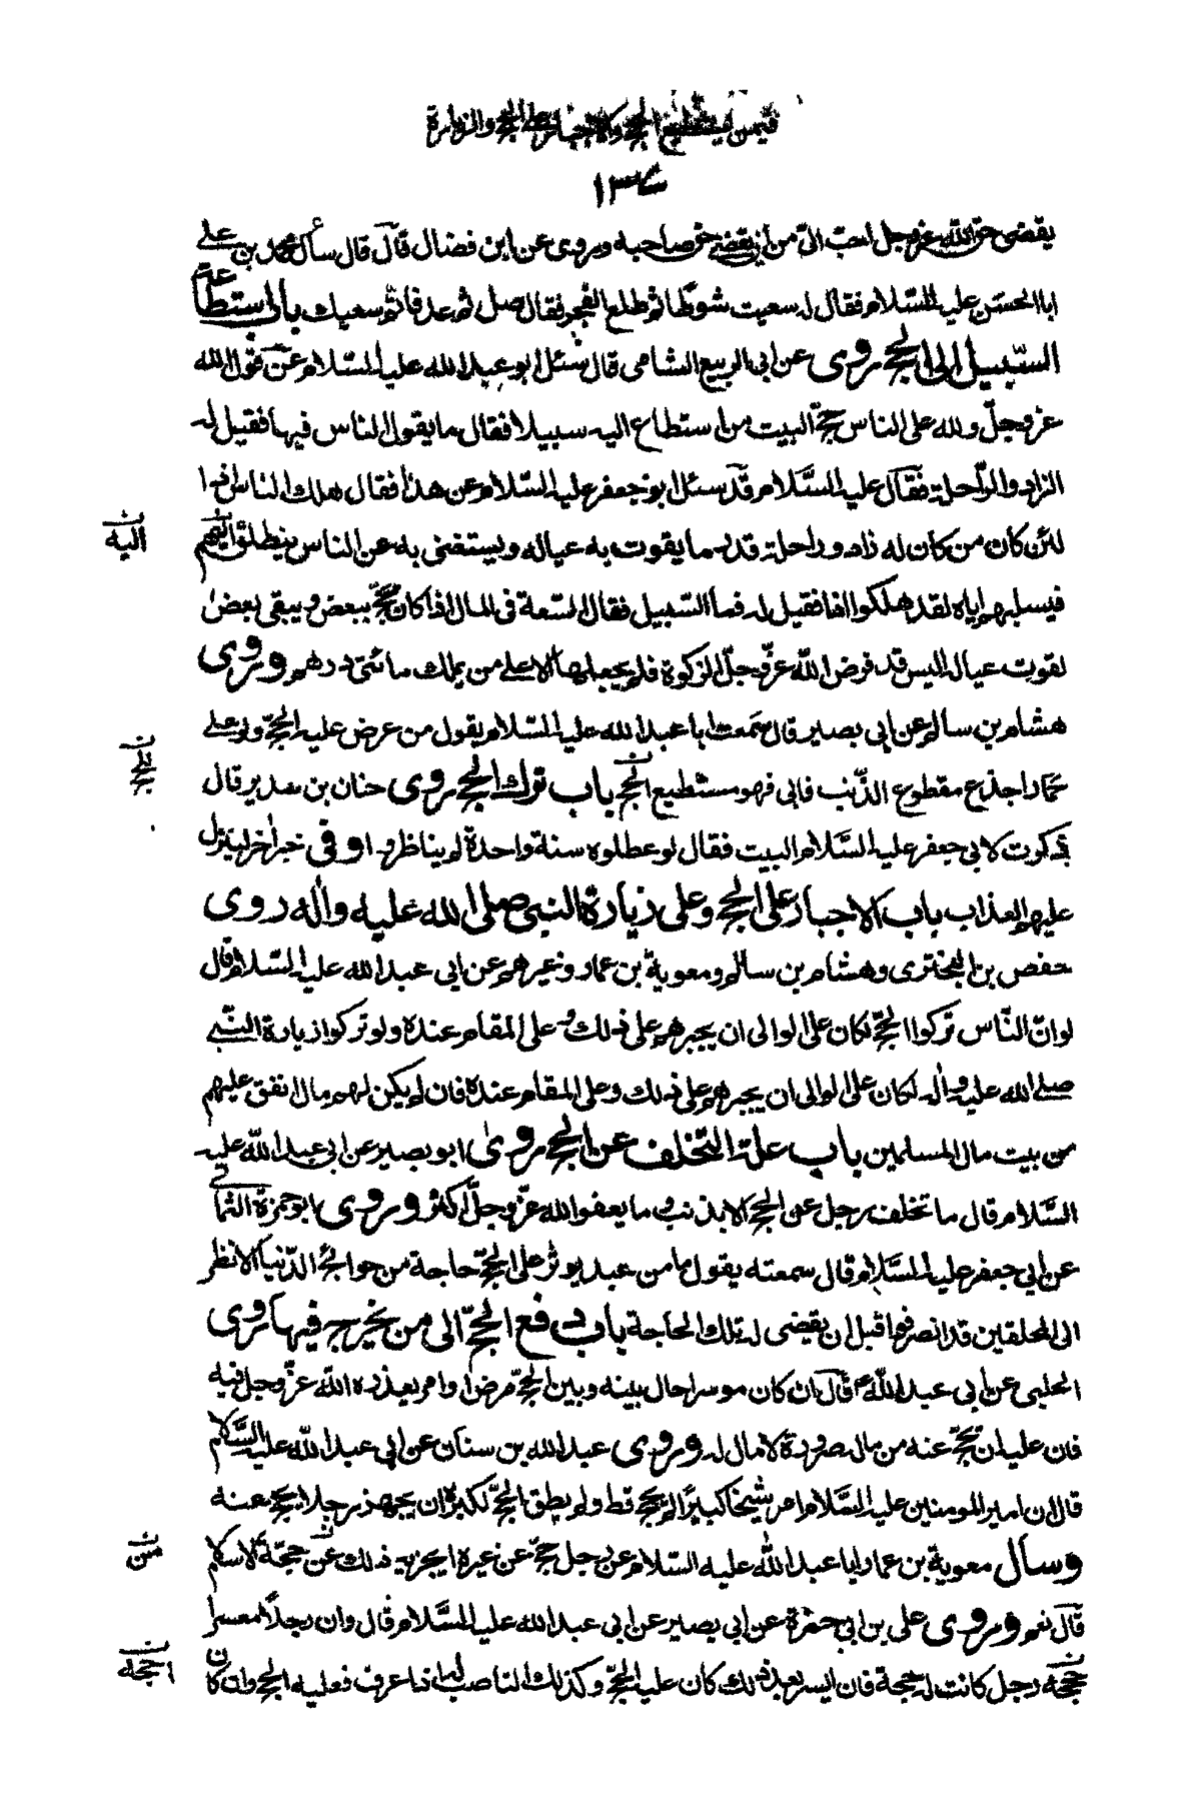 فيمن يستطيع الحج والاجبار على الحج والزيارة
يقضى حق الله عز وجل احب الىّ من ان يقضى حق صاحبه وروى عن ابن فضال قال قال سأل محمد بن على
ابا الحسن عليه السلام فقال له سعيت شوطا ثم طلع الفجر فقال صل ثم عد فاتم سعيك باب استطاعة
السّبيل الى الحج روى عن ابى الربيع الشامى قال سئل ابو عبد الله عليه السّلام عن قول الله
عز وجلّ ولله على الناس حجّ البيت من استطاع اليه سبيلا فقال ما يقول الناس فيها فقيل له
الزاد والرّاحلة فقال عليه السَّلام قد سئل ابو جعفر عليه السّلام عن هذا فقال هلك الناس اذا
لئن كان من كان له زاد وراحلة قدر ما يقوت به عياله ويستغنى به عن الناس ينطلق اليهم
اليه
فيسلبهم اياه لقد هلكوا اذا فقيل له فما السّبيل فقال السّعة فى المال اذا كان يحجّ ببعض ويبقى بعض
لقوت عياله اليس قد فرض اللّه عزّ وجلّ الزكوة فلم يجعلها الا على من يملك مائتى درهم وروى
هشام بن سالم عن ابى بصير قال سمعت ابا عبد الله عليه السّلام يقول من عرض عليه الحجّ ولو على
حمار اجذع مقطوع الذّنب فابى فهو مستطيع الحج باب ترك الحج روى حنان بن سدير قال
ذكرت لابى جعفر عليه السَّلام البيت فقال لو عطلوه سنة واحدة لم يناظروا وفى خبر اخر لينزل
عليهم العذاب باب الاجبار على الحج وعلى زيارة النبى صلى الله عليه واله روى
حفص بن البخترى وهشام بن سالم ومعوية بن عمار وغيرهم عن ابى عبد الله عليه السّلام قال
لو انّ النّاس تركوا الحجّ لكان على الوالى ان يجبرهم على ذلك وعلى المقام عنده ولو تركوا زيارة النّبى
صلى الله عليه واله لكان على الوالى ان يجبرهم على ذلك وعلى المقام عنده فان لم يكن لهم مال انفق عليهم
من بيت مال المسلمين باب علة التخلف عن الحج روى ابو بصير عن ابى عبد اللّه عليه
السَّلام قال ما تخلف رجل عن الحج الا بذنب وما يعفوا الله عزّ وجلّ اكثر وروى ابو حمزة الثمالى
عن ابى جعفر عليه السَّلام قال سمعته يقول ما من عبد يوثر على الحجّ حاجة من حوائج الدّنيا الا نظر
الى المحلقين قد انصرفوا قبل ان يقضى له تلك الحاجة باب دفع الحجّ الى من يخرج فيها روى
الحلبى عن ابى عبد اللّه ع قال ان كان موسرا حال بينه وبين الحجّ مرض او امر يعذره اللّه عزّ وجل فيه
فان عليه ان يحجّ عنه من ماله صرورة لا مال له وروى عبد الله بن سنان عن ابى عبد اللّه عليه السَّلام
قال ان امير المومنين عليه السَّلام امر شيخا كبيرا لم يحج قط ولم يطق الحجّ لكبره ان يجهز رجلا يحج عنه
وسأل معوية بن عمار ابا عبد اللّه عليه السّلام عن رجل حجّ عن غيره ايجزيه ذلك عن حجّة الاسلام
من
قال نعم وروى على بن ابى حمزة عن ابى بصير عن ابى عبد الله عليه السَّلام قال وان رجلا معسرا
حجّه رجل كانت له حجة فان ايسر بعد ذلك كان عليه الحجّ وكذلك الناصب اذا عرف فعليه الحج وان كان
احجه